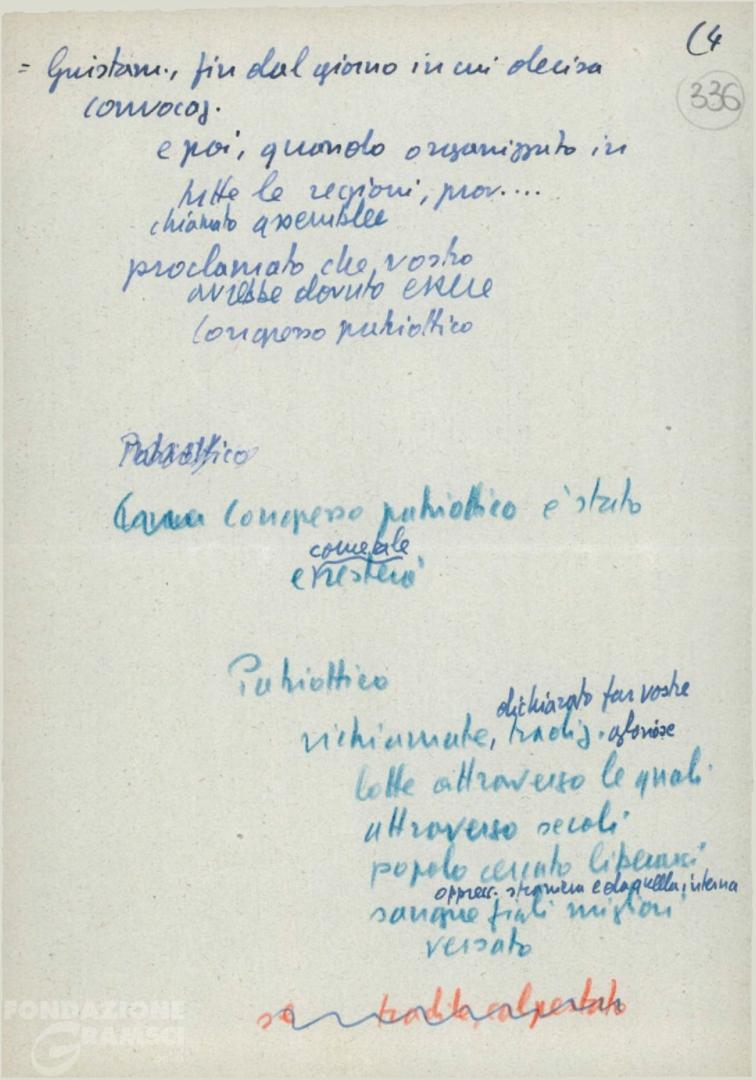 (4
336
= Giustam., fin dal giorno in cui decisa
convocaz.
e poi, quando organizzato in
tutte le regioni, prov....
chiamato assemblee
proclamato che vostro
avrebbe dovuto essere
Congresso patriottico
Patriottico
Congresso patriottico è stato
come tale
e resterà
Patriottico
dichiarato far vostre
richiamate, tradiz. gloriose
lotte attraverso le quali
attraverso secoli
popolo cercato liberarsi
oppress. straniera e da quella interna
sangue figli migliori
versato
se tradito, calpestato
FONDAZIONE
GRAMSCI